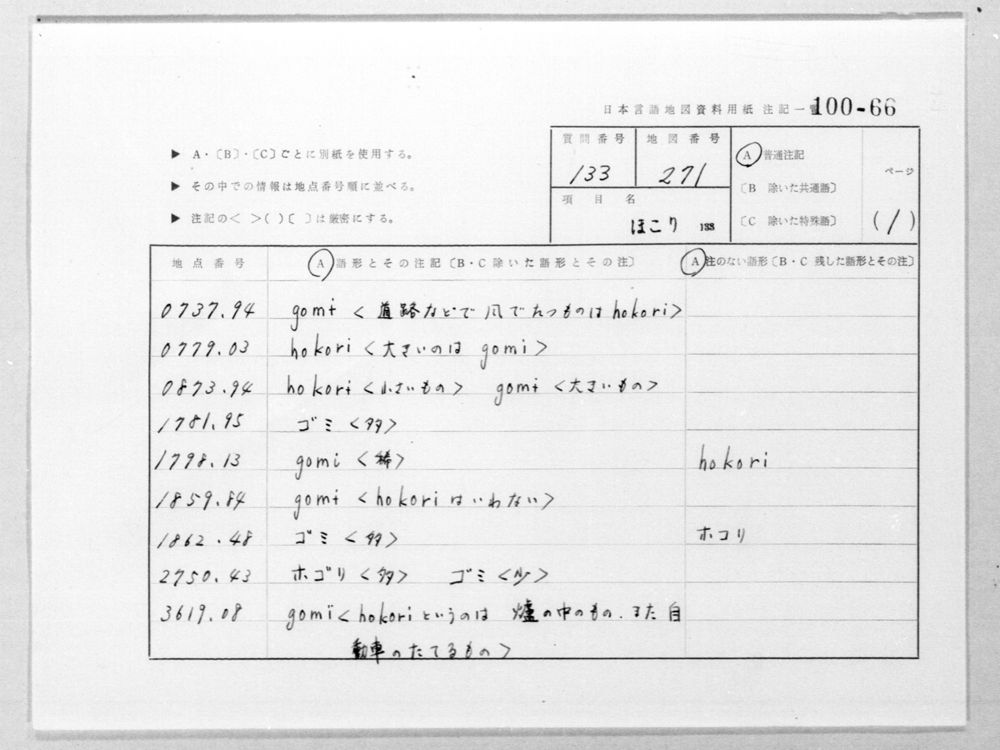 日本言語地図資料用紙 注記一覧 100-66
▶ A・〔B〕・〔C〕ごとに別紙を使用する。
▶ その中での情報は地点番号順に並べる。
▶ 注記の< >( )〔 〕は厳密にする。
質問番号 地図番号
133 271
項目名
ほこり 133
A 普通注記
〔B 除いた共通語〕
〔C 除いた特殊語〕
ページ
(1)
地点番号 A 語形とその注記〔B・C 除いた語形とその注〕 A 注のない語形〔B・C 残した語形とその注〕
0737.94 gomi <道路などで風でたつものは hokori>
0779.03 hokori <大きいのは gomi>
0873.94 hokori <小さいもの> gomi <大きいもの>
1781.95 ゴミ <多>
1798.13 gomi <稀> hokori
1859.84 gomi <hokori はいわない>
1862.48 ゴミ <多> ホコリ
2750.43 ホゴリ <多> ゴミ <少>
3619.08 gomï <hokori というのは 爐の中のもの．また自
動車のたてるもの>